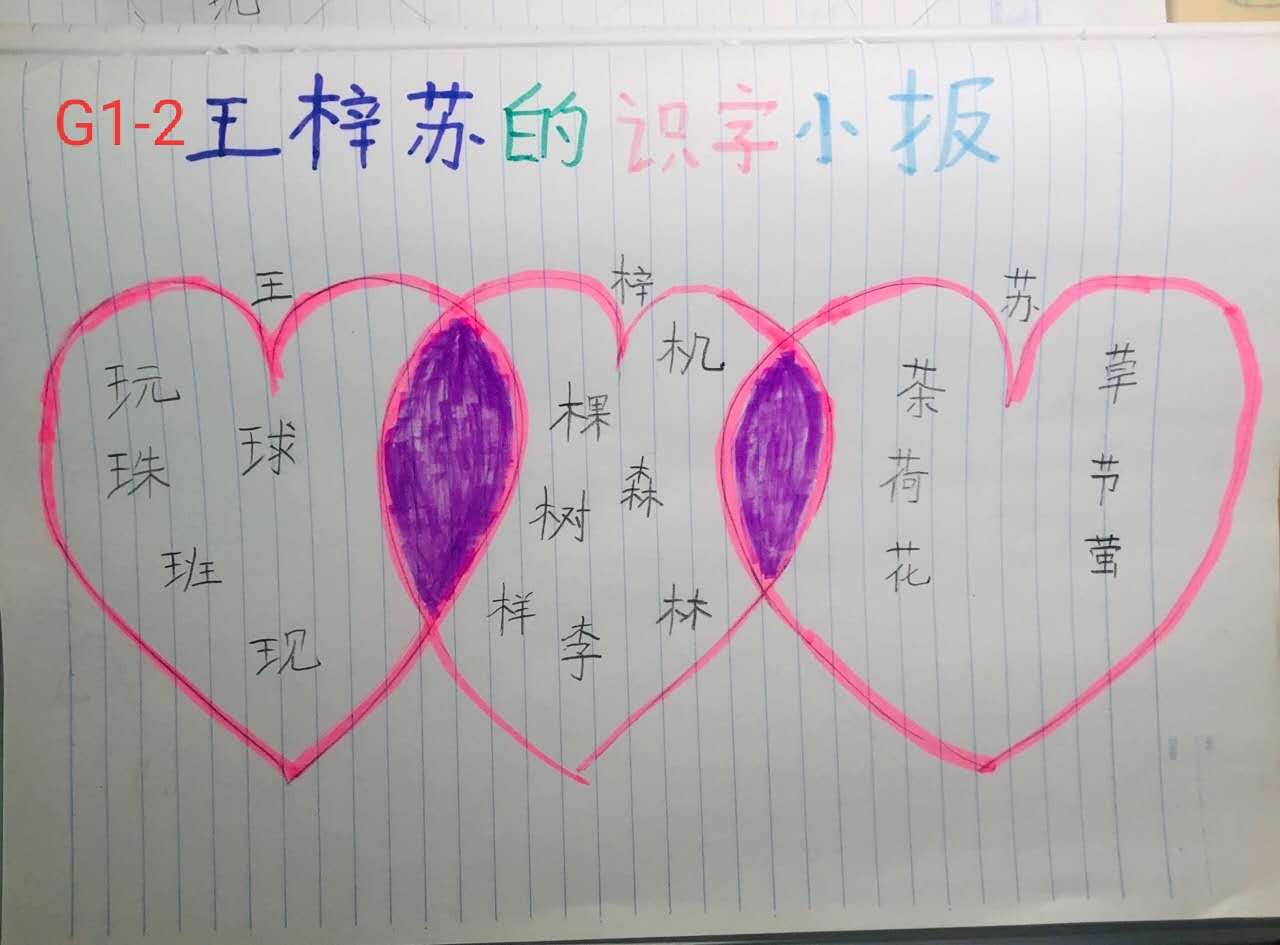 G1-2王梓苏的识字小报
王
梓
苏
玩
球
珠
班
现
机
棵
森
树
样
李
林
茶
草
荷
节
花
萤